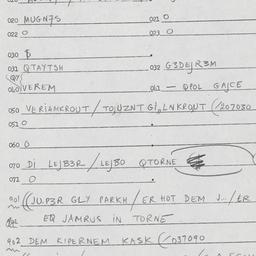 020 MUGN7S 021 0
022 0 023 0
030 B
031 QTAYTSH 032 G3DEJR3M
040 VEREM 041 — QPOL GAJCE
050 VERIAMKROUT / TOJUZNT GLLNKROUT (/207030
051 0
060 0
070 DI LEJB3R / LEJBO QTORNE
071 0
901 ((JU.P3R GLY PARKH / ER HOT DEM J../ER
EQ JAMRUS IN TORNE
902 DEM KIPERNEM KASK (/037090